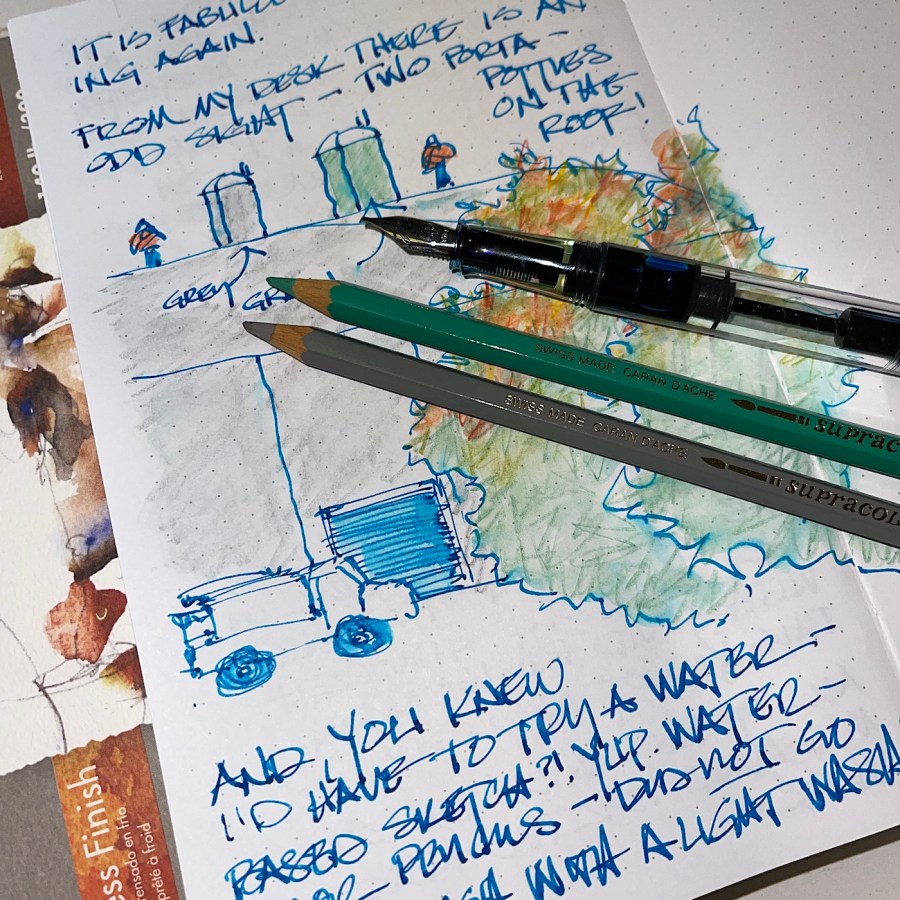 IT IS FABULO
ING AGAIN.
FROM MY DESK THERE IS AN
ODD SIGHT - TWO PORTA-
POTTIES
ON THE
ROOF!
GREY
GR
SWISS MADE CARAN D'ACHE supraco
SWISS MADE CARAN D'ACHE supracol
AND, YOU KNEW
I'D HAVE TO TRY A WATER-
BASED SKETCH?! YUP. WATER-
PENCILS - DID NOT GO
WITH A LIGHT WASH
ess Finish
rensado en frio.
prêté à froid